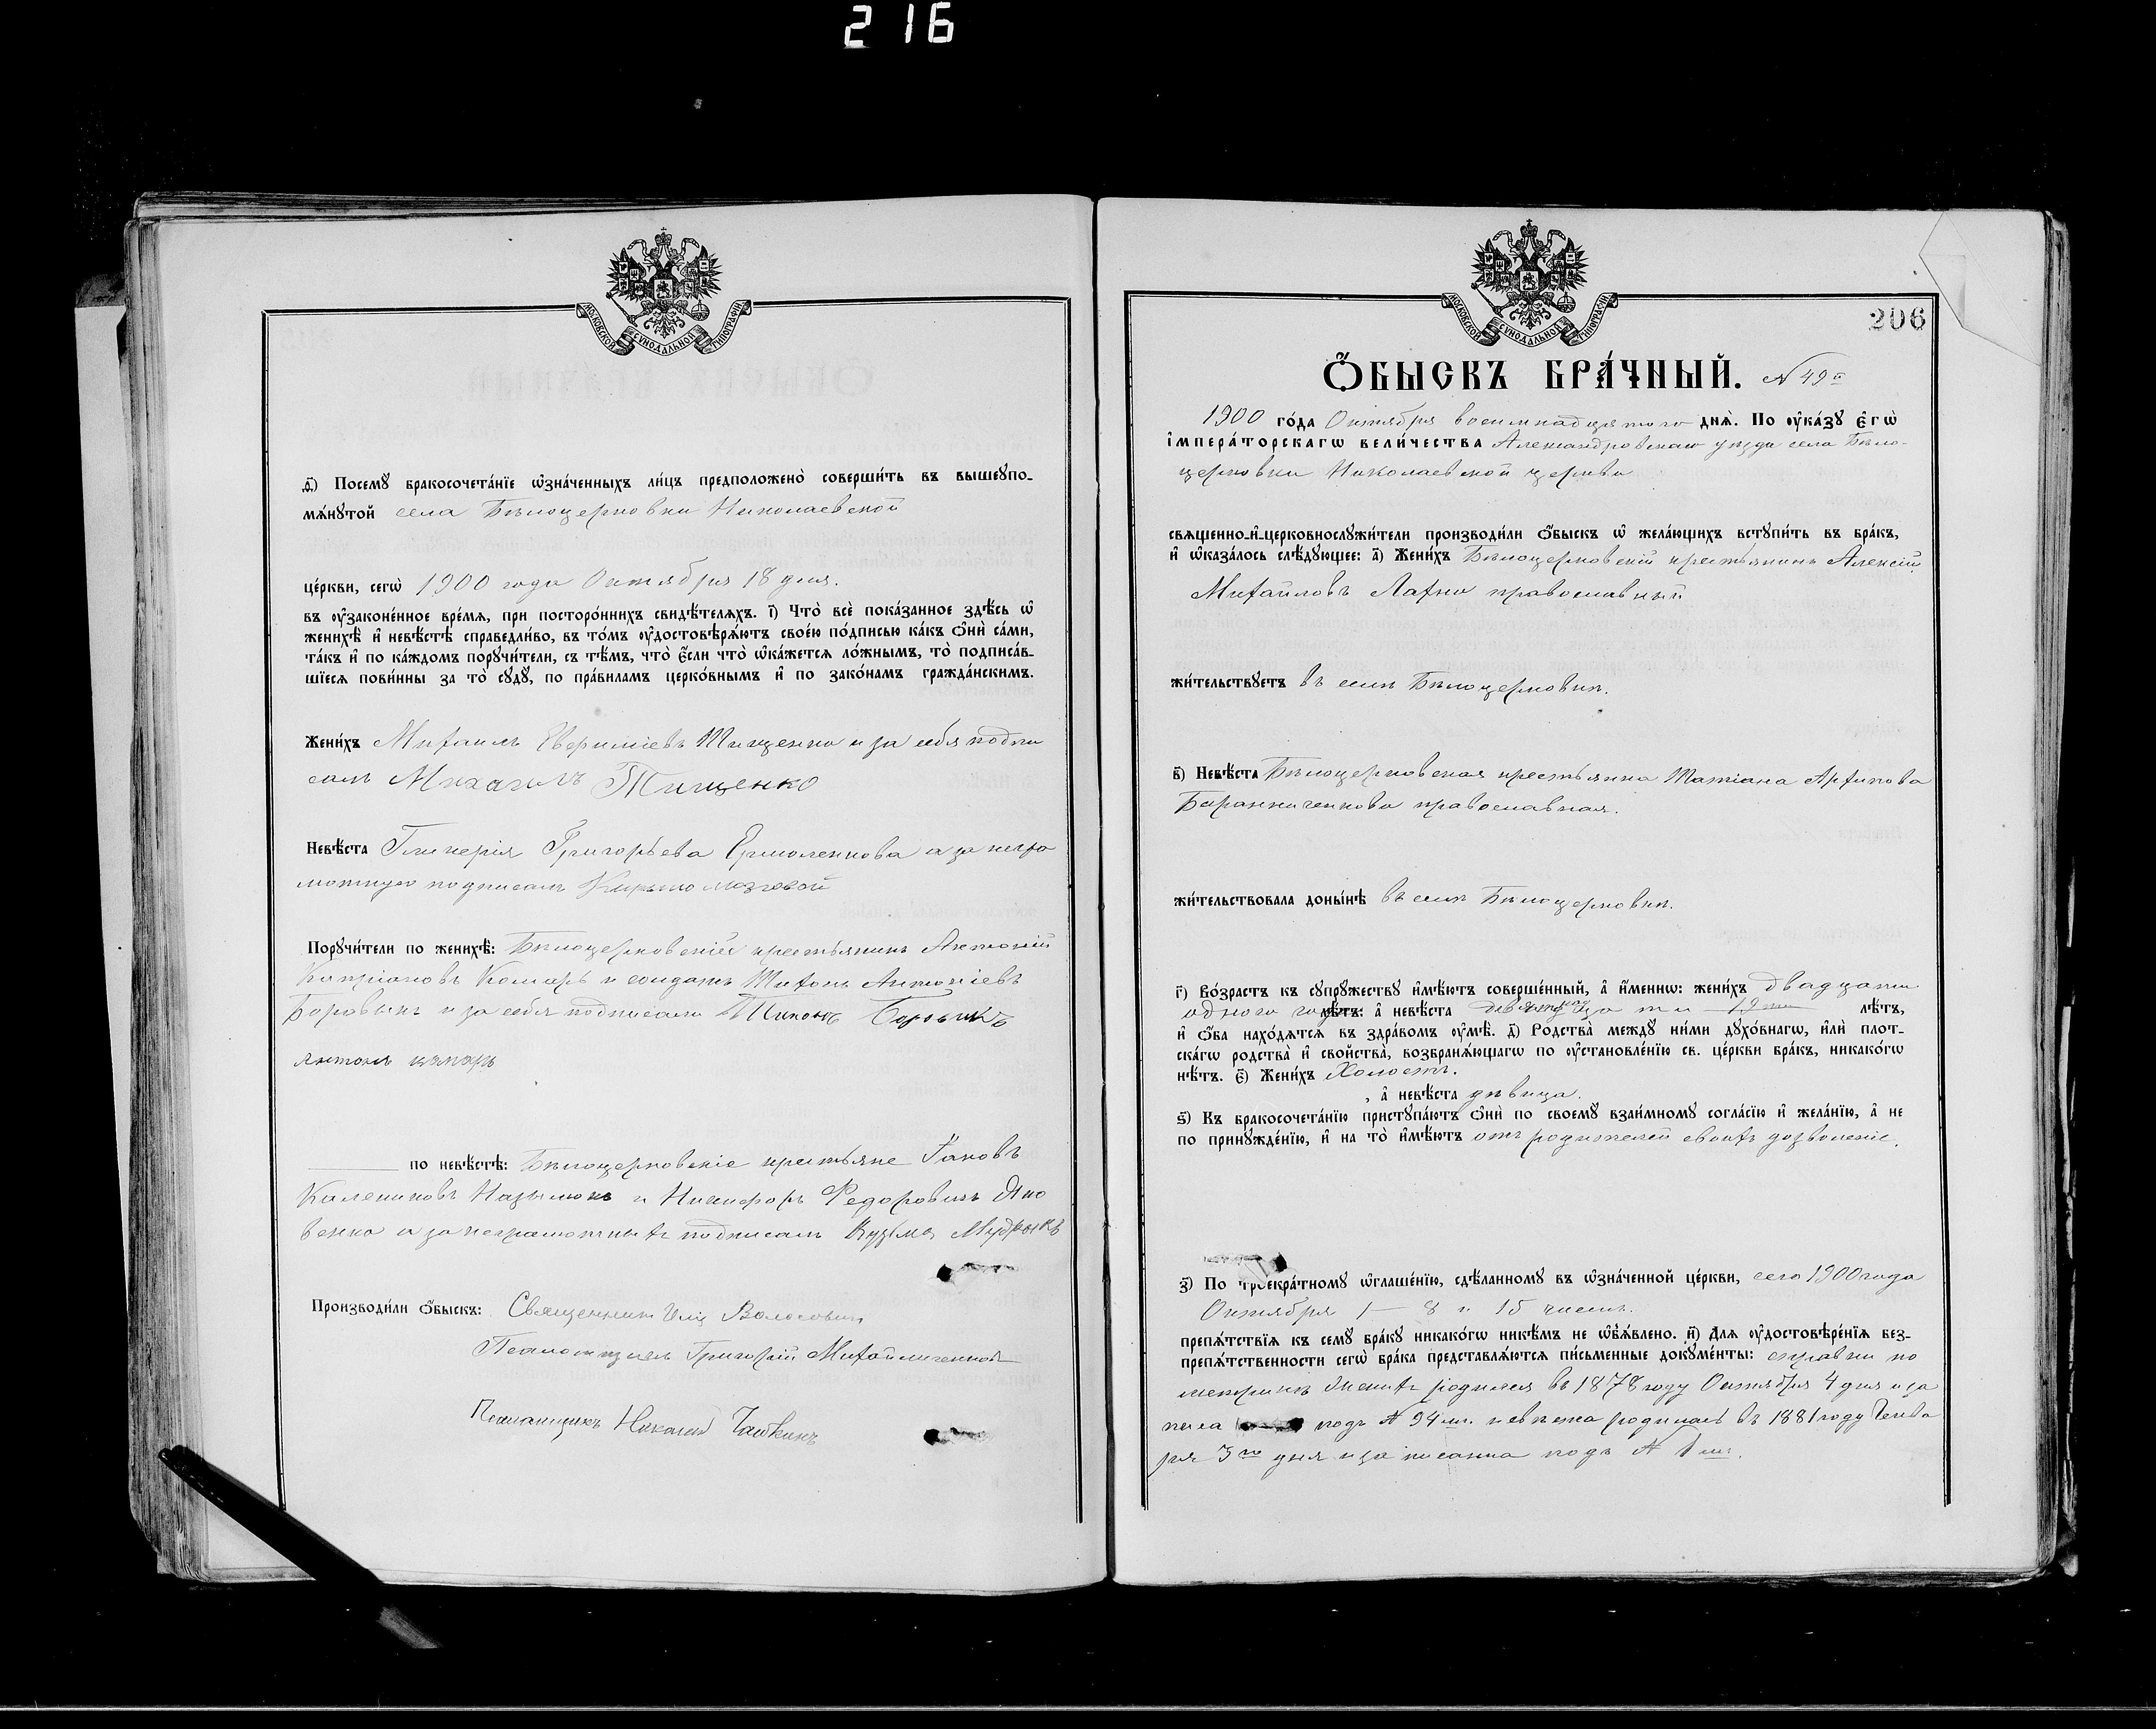 216
МОСКОВСКОЙ СѴНОДАЛЬНОЙ ТИПОГРАФІИ
ѳ҃) Посемꙋ̀ бракосочета́нїе ѡ҆зна́ченныхъ ли́цъ предположено̀ соверши́ть въ вышеꙋпо-
мѧ́нꙋтой села Бѣлоцерковки Николаевской
це́ркви, сегѡ̀ 1900 года Октября 18 дня.
въ ᲂу҆зако́не́нное вре́мѧ, при посторо́ннихъ свидѣ́телѧхъ. і҃) Что̀ всѐ пока́занное здѣ́сь ѡ҆
женихѣ̀ и҆ невѣ́стѣ справедли́во, въ то́мъ ᲂу҆достовѣрѧ́ютъ свое́ю по́дписью ка́къ ѻ҆нѝ са́ми,
та́къ и҆ по ка́ждомъ порꙋчи́тели, съ тѣ́мъ, что̀ є҆́сли что̀ ѡ҆ка́жетсѧ ло́жнымъ, то̀ подписа́в-
шїесѧ пови́нны за то̀ сꙋдꙋ̀, по пра́виламъ церко́внымъ и҆ по зако́намъ гражда́нскимъ.
Жени́хъ Михаилъ Евфиміевъ Тищенко и за себя подпи
салъ Михаилъ Тищенко
Невѣ́ста Гликерія Григорьева Ермоленкова а за негра
мотную подписалъ
Порꙋчи́тели по женихѣ̀: Бѣлоцерковскій крестьянинъ Антоній
Кипріановъ Комаръ и солдатъ Тихонъ Антоніевъ
Боровыкъ и за себя подписали Тихонъ Боровикъ
Антонъ камаръ
по невѣ́стѣ: Бѣлоцерковскіе крестьяне Яковъ
Калениковъ и Никифоръ Федоровичъ Яко
венко а за неграмотныхъ подписалъ Кузьма
Производи́ли ѻ҆́быскъ: Священникъ Илія Волосовичъ
Псаломщикъ Григорій Михайличенко
Псаломщикъ Николай
МОСКОВСКОЙ СѴНОДАЛЬНОЙ ТИПОГРАФІИ
206
Ѻ҆́БЫСКЪ БРА́ЧНЫЙ. № 49й
1900 го́да Октября восемнадцатого днѧ̀. По ᲂу҆ка́зꙋ Є҆гѡ̀
і҆мпера́торскагѡ вели́чества Александровскаго уѣзда села Бѣло-
церковки Николаевской церкви
свѧще́нно-и҆-церковнослꙋжи́тели производи́ли ѻ҆́быскъ ѡ҆ жела́ющихъ встꙋпи́ть въ бра́къ,
и҆ ѡ҆каза́лось слѣ́дꙋющее: а҃) Жени́хъ Бѣлоцерковскій крестьянинъ Алексій
Михайловъ Лахно православный
жи́тельствꙋетъ въ селѣ Бѣлоцерковкѣ.
в҃) Невѣ́ста Бѣлоцерковская крестьянка Татіана Архипова
Баранниченкова православная.
жи́тельствовала доны́нѣ въ селѣ Бѣлоцерковкѣ.
г҃) Во́зрастъ къ сꙋпрꙋ́жествꙋ и҆мѣ́ютъ соверше́нный, а҆ и҆́меннѡ: жени́хъ двадцати
одного года лѣ́тъ: а҆ невѣ́ста девятнадцати 19ти лѣ́тъ,
и҆ ѻ҆́ба нахо́дѧтсѧ въ здра́вомъ ᲂу҆мѣ̀. д҃) Родства̀ междꙋ̀ ни́ми дꙋхо́внагѡ, и҆лѝ плот-
ска́гѡ родства̀ и҆ сво́йства̀, возбранѧ́ющагѡ по ᲂу҆становле́нїю св. це́ркви бра́къ, никако́гѡ
нѣ́тъ. є҃) Жени́хъ Холостъ.
, а҆ невѣ́ста дѣвица.
ѕ҃) Къ бракосочета́нїю пристꙋпа́ютъ ѻ҆нѝ по своемꙋ̀ взаи́мномꙋ согла́сїю и҆ жела́нїю, а҆ не
по принꙋжде́нїю, и҆ на то̀ и҆мѣ́ютъ отъ родителей своихъ дозволеніе.
з҃) По троекра́тномꙋ ѡ҆глаше́нїю, сдѣ́ланномꙋ въ ѡ҆зна́ченной це́ркви, сего 1900 года
Октября 1 – 8 и 15 числъ.
препѧ́тствїѧ къ семꙋ̀ бра́кꙋ никако́гѡ никѣ́мъ не ѡ҆б̾ѧ́влено. и҃) Длѧ ᲂу҆достовѣре́нїѧ без-
препѧ́тственности сегѡ̀ бра́ка представлѧ́ютсѧ пи́сьменные докꙋме́нты: справки по
метрикѣ Женихъ родился въ 1878 году Октября 4 дня и за
писа подъ № 94м. невѣста родилась въ 1881 году Генва
ря 3го дня и записанна подъ № 1м.